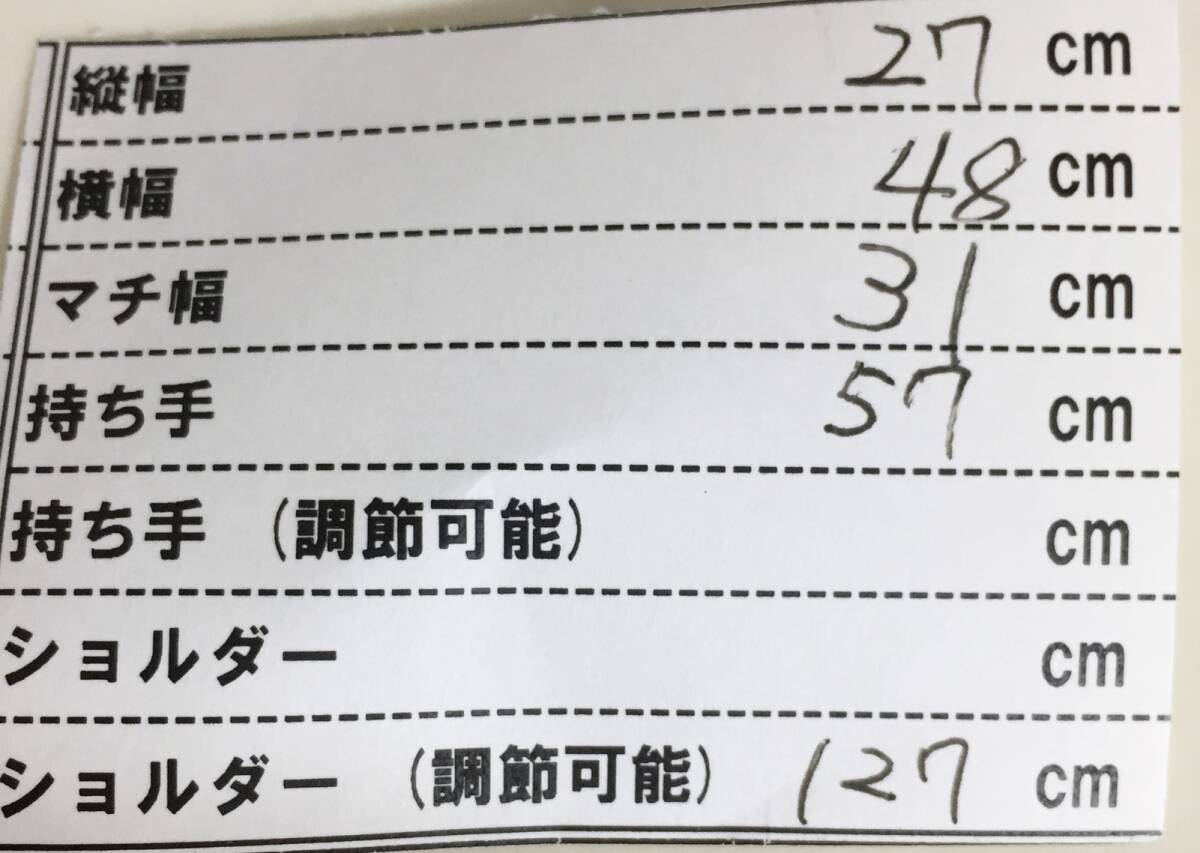 縦幅 27 cm
横幅 48 cm
マチ幅 31 cm
持ち手 57 cm
持ち手 (調節可能) cm
ショルダー cm
ショルダー (調節可能) 127 cm